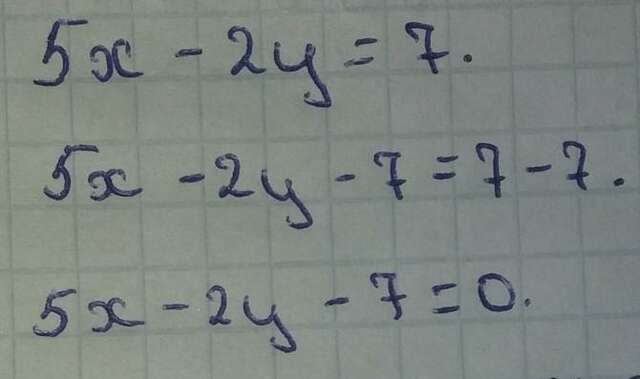 5x - 2y = 7.
5x - 2y - 7 = 7 - 7.
5x - 2y - 7 = 0.